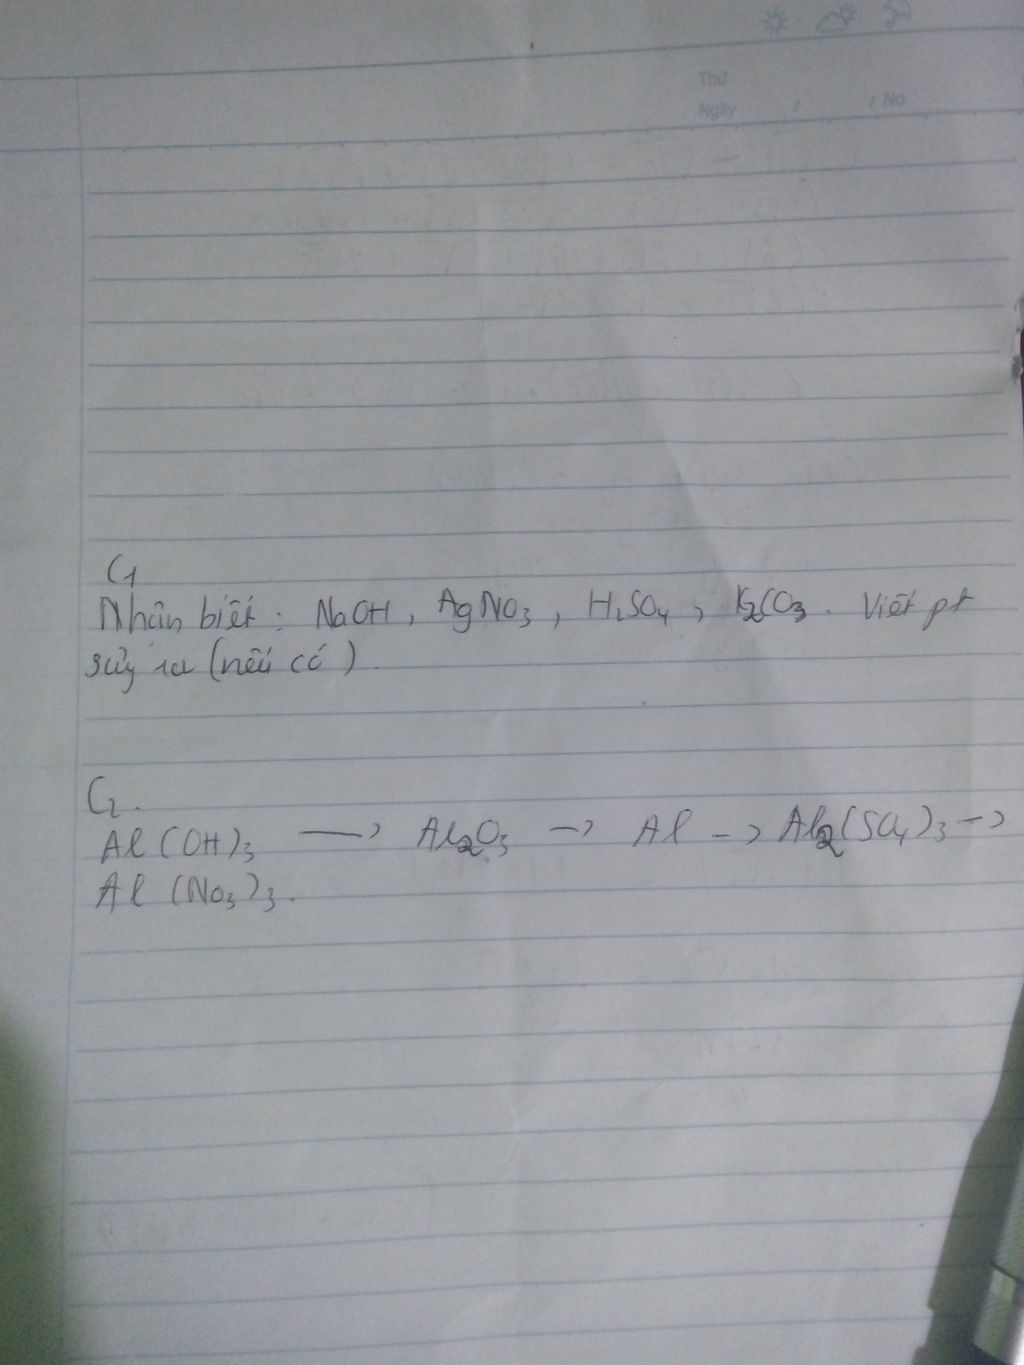 Thứ
Ngày / / No
C1
Nhân biết : NaOH, AgNO3, H2SO4, K2CO3. Viết pt
sảy ra (nếu có).
C2.
Al(OH)3 → Al2O3 → Al → Al2(SO4)3 →
Al(NO3)3.